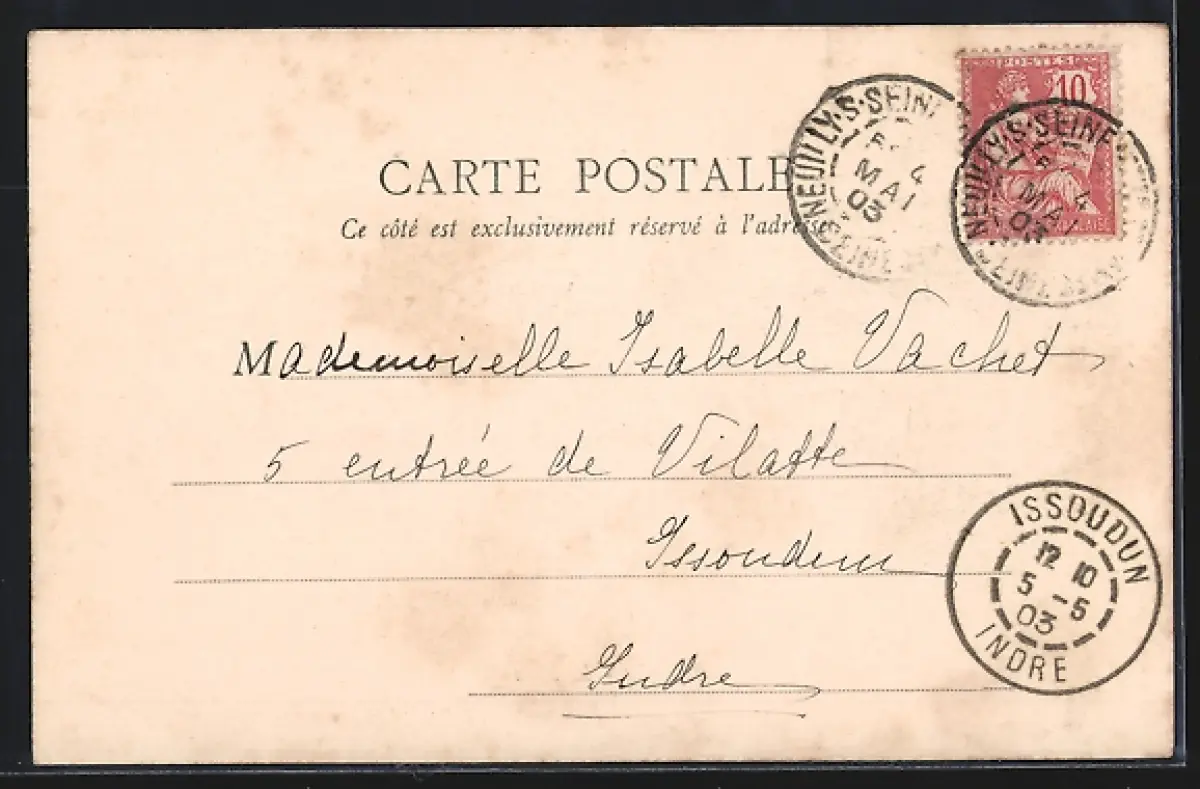 CARTE POSTALE
Ce côté est exclusivement réservé à l'adresse
POSTES
10
NEUILLY-S-SEINE
4
MAI
03
NEUILLY·S·SEINE
4
MAI
03
Mademoiselle Isabelle Vachet
5 entrée de Vilatte
Issoudun
Indre
ISSOUDUN
12 10
5 -5
03
INDRE